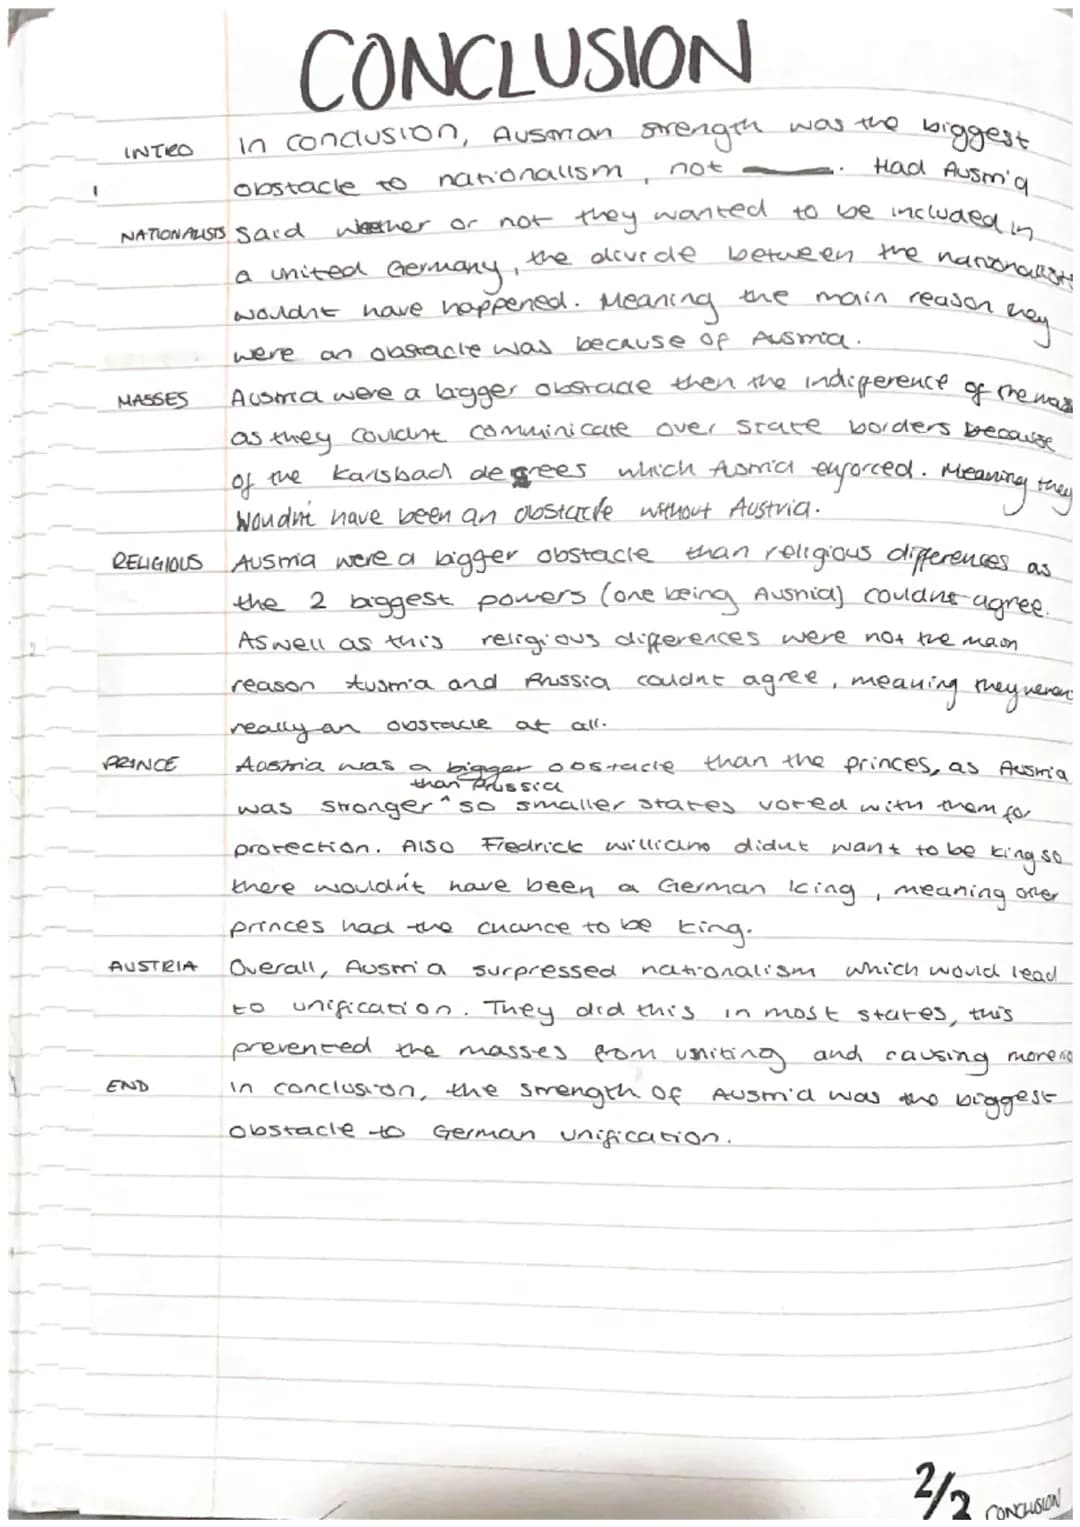 CONCLUSION
INTRO In conclusion, Austrian strength was the biggest
obstacle to nationalism, not ____. Had Austria
NATIONALISTS said weather or not they wanted to be included in
a united Germany, the divide between the nationalists
wouldnt have happened. Meaning the main reason they
were an obstacle was because of Austria.
MASSES Austria were a bigger obstacle then the indiference of the mass
as they couldnt comminicate over state borders because
of the Karlsbad degrees which Austria enforced. Meaning they
Woudnt have been an obstacle without Austria.
RELIGIOUS Austria were a bigger obstacle than religious differences as
the 2 biggest powers (one being Austria) couldnt agree.
Aswell as this religious differences were not the main
reason Austria and Prussia couldnt agree, meaning they werent
really an obstacle at all.
PRINCE Austria was a bigger obstacle than the princes, as Austria
than Prussia
was stronger ^ so smaller states voted with them for
protection. Also Fredrick william didnt want to be king so
there wouldn't have been a German king, meaning other
princes had the chance to be king.
AUSTRIA Overall, Austria surpressed nationalism which would lead
to unification. They did this in most states, this
prevented the masses from uniting and causing more
END In conclusion, the strength of Austria was the biggest
obstacle to German unification.
2/2 CONCLUSION